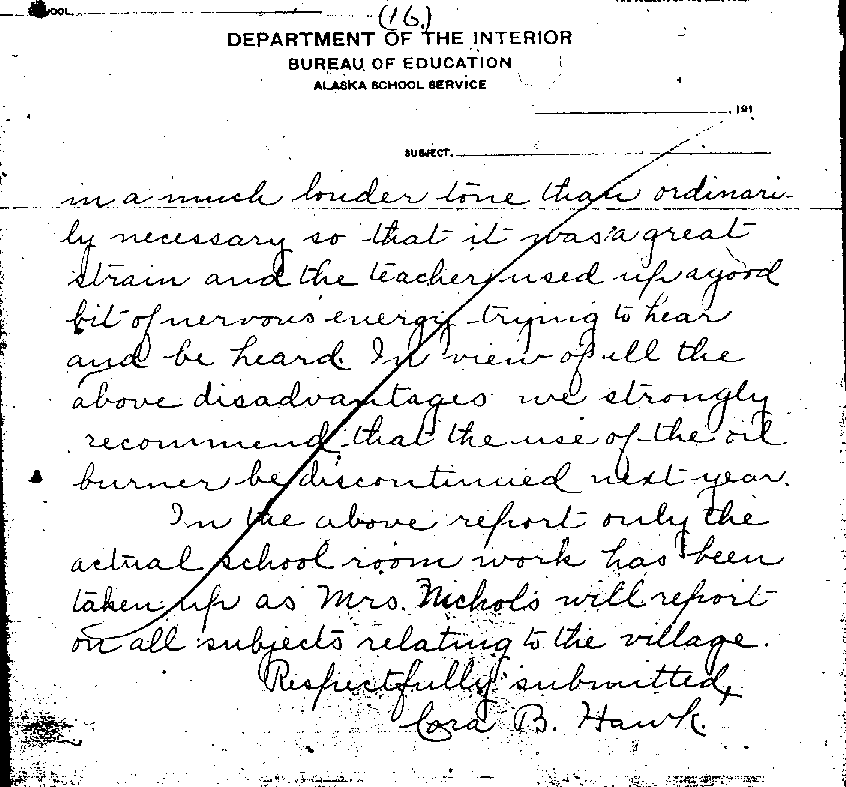 SCHOOL.
(16.)
DEPARTMENT OF THE INTERIOR
BUREAU OF EDUCATION
ALASKA SCHOOL SERVICE
, 191
SUBJECT.
in a much louder tone than ordinari-
ly necessary so that it was a great
strain and the teachers used up a good
bit of nervous energy trying to hear
and be heard. In view of all the
above disadvantages we strongly
recommend that the use of the oil
burner be discontinued next year.
In the above report only the
actual school room work has been
taken up as Mrs. Nichols will report
on all subjects relating to the village.
Respectfully submitted,
Cora B. Hawk.